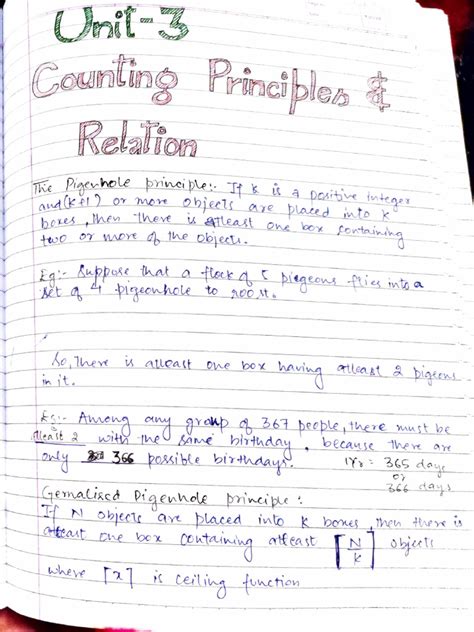 Unit-3
Counting Principles &
Relation
The Pigenhole principle:- If k is a positive integer
and (k+1) or more objects are placed into k
boxes, then there is atleast one box containing
two or more of the objects.
Eg:- Suppose that a flock of 5 piegeons flies into a
set of 4 pigeonhole to roost.
So, There is atleast one box having atleast 2 pigeons
in it.
Eg:- Among any group of 367 people, there must be
atleast 2 with the same birthday, because there are
only 366 possible birthdays.
1Yr = 365 days
or
366 days
Gernalised Pigenhole principle:
If N objects are placed into k boxes, then there is
atleast one box containing atleast ⌈N/k⌉ objects
where ⌈x⌉ is ceiling function